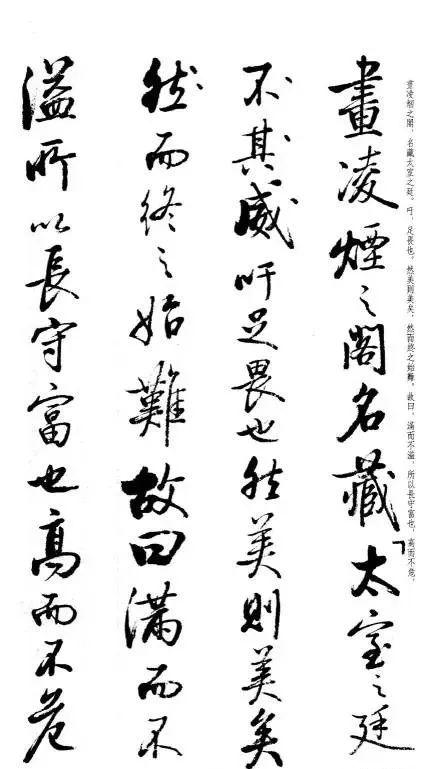 畫凌烟之閣，名藏太室之廷。吁，足畏也。然美則美矣，然而終之始難。故曰，滿而不溢，所以長守富也，高而不危，
畫凌煙之閣名藏太室之廷
不其威吁足畏也然美則美矣
然而終之始難故曰滿而不
溢所以長守富也高而不危